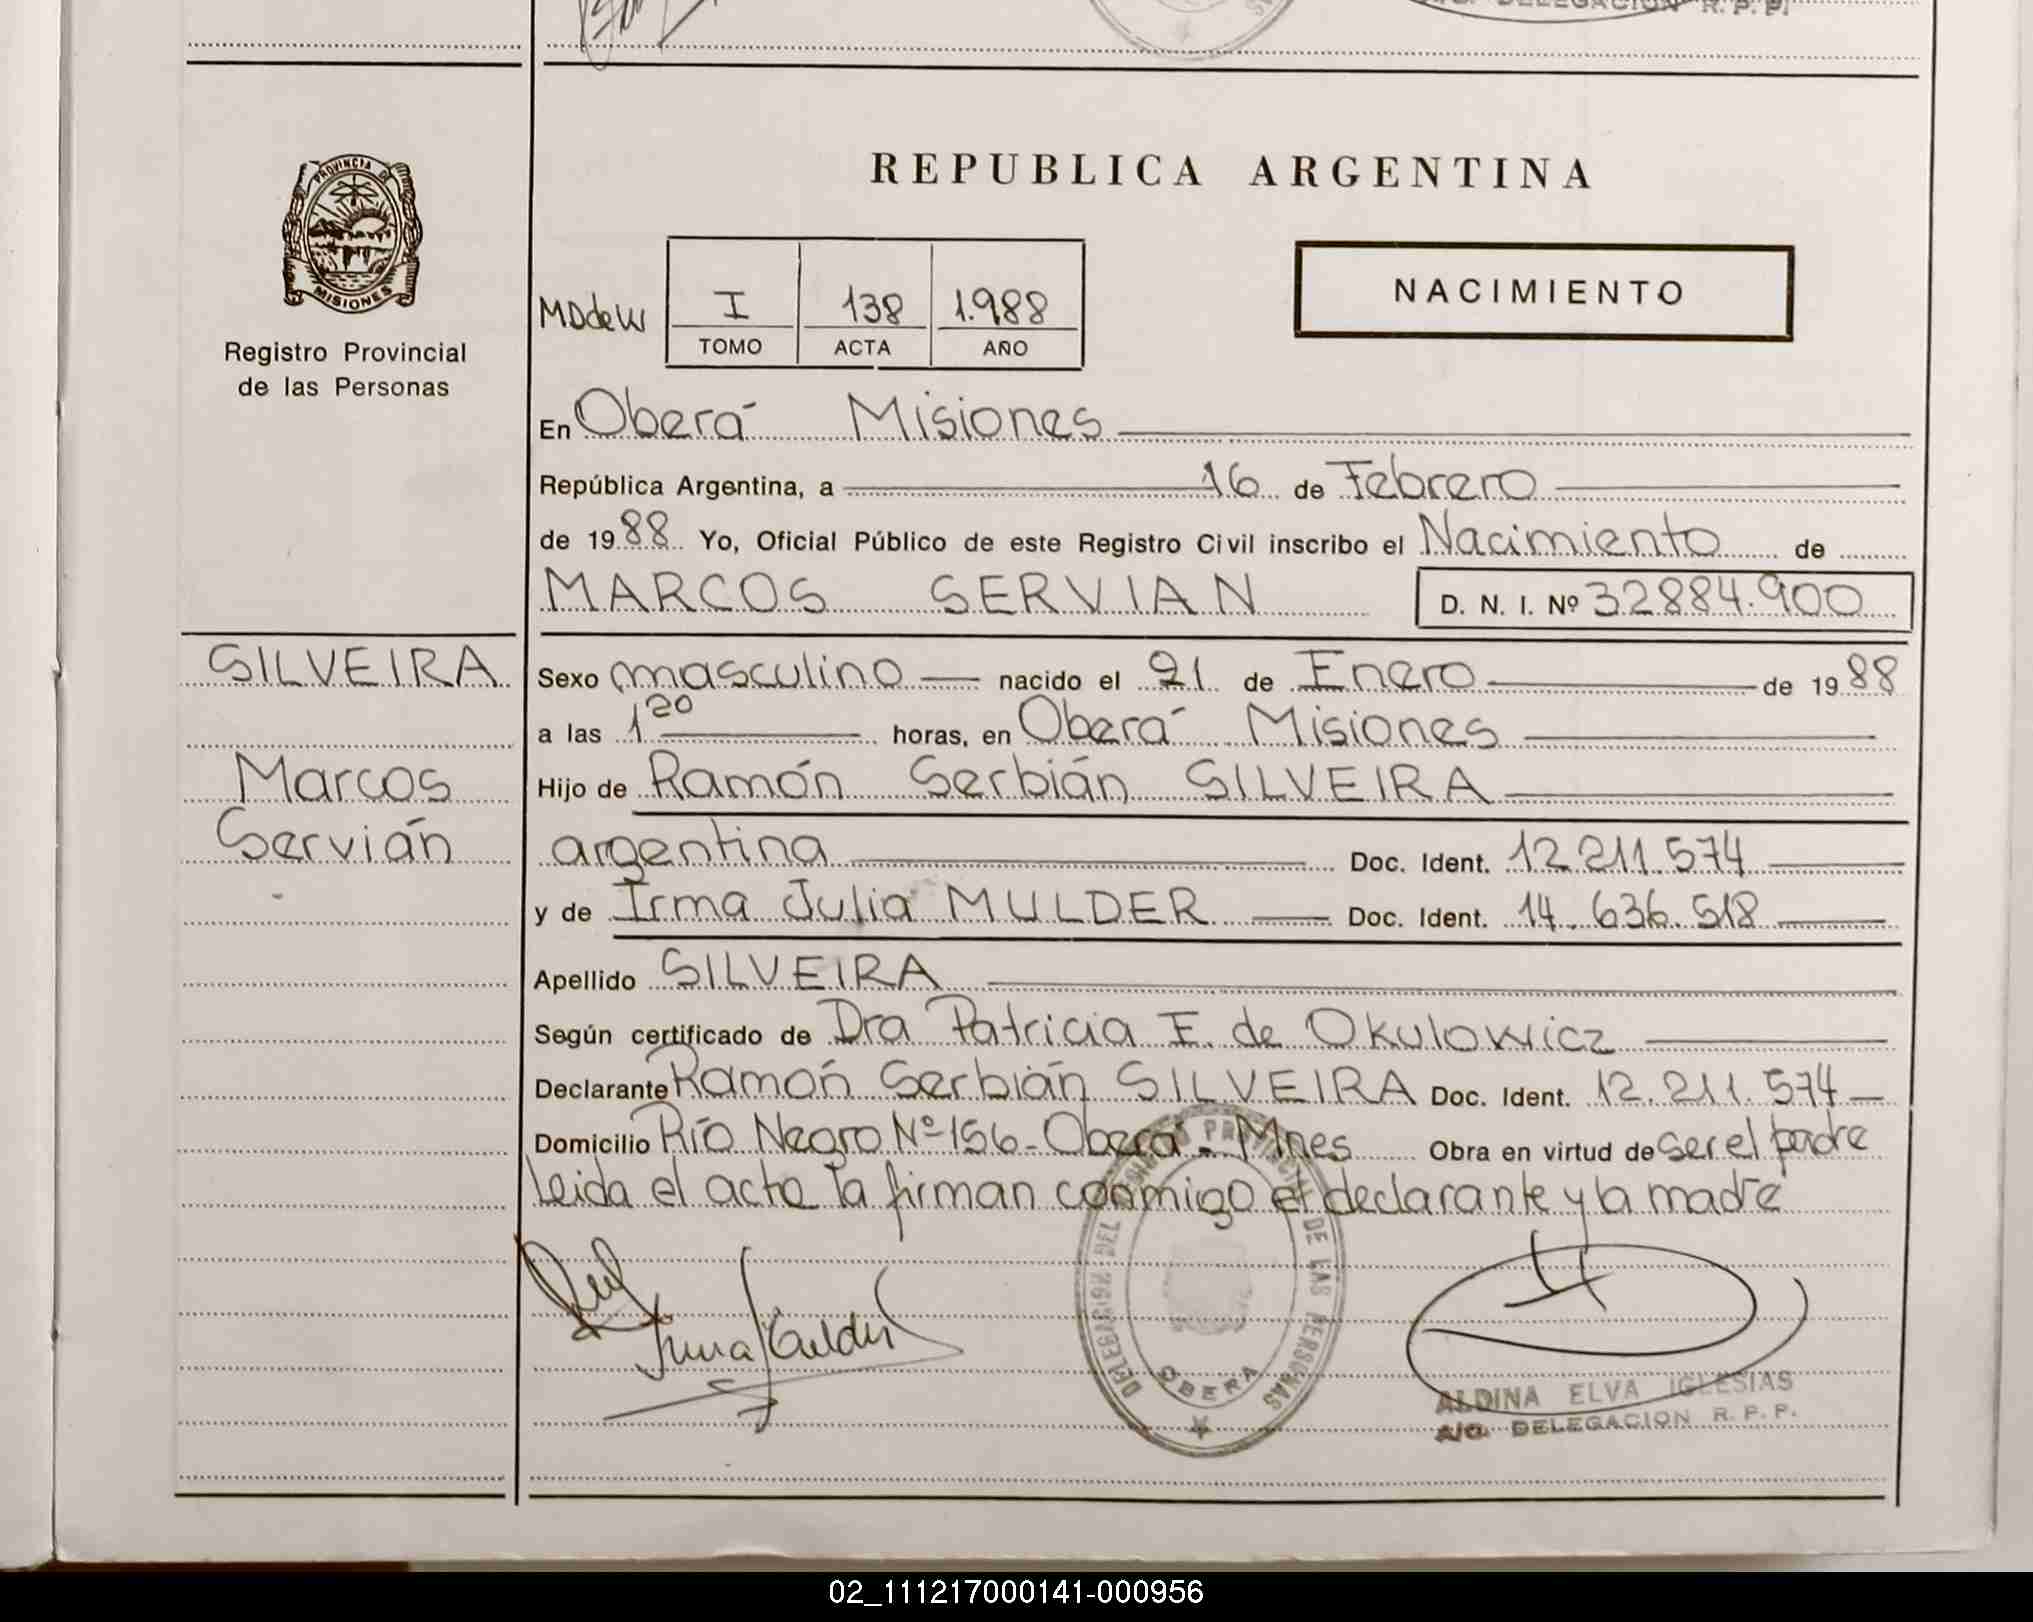 DELEGACION R. P. P.
PROVINCIA DE
MISIONES
Registro Provincial
de las Personas
REPUBLICA ARGENTINA
NACIMIENTO
MDdeW I 138 1.988
TOMO ACTA AÑO
En Oberá Misiones
República Argentina, a 16 de Febrero
de 1988 Yo, Oficial Público de este Registro Civil inscribo el Nacimiento de
MARCOS SERVIAN D. N. I. Nº 32884.900
SILVEIRA
Marcos
Servián
Sexo masculino nacido el 21 de Enero de 1988
a las 1 20 horas, en Oberá Misiones
Hijo de Ramón Serbián SILVEIRA
argentina Doc. Ident. 12.211.574
y de Irma Julia MULDER Doc. Ident. 14.636.518
Apellido SILVEIRA
Según certificado de Dra Patricia E. de Okulowicz
Declarante Ramón Serbián SILVEIRA Doc. Ident. 12.211.574
Domicilio Río Negro Nº 156 - Oberá - Mnes Obra en virtud de ser el padre
Leida el acta la firman conmigo el declarante y la madre
DELEGACION DEL REGISTRO PROVINCIAL DE LAS PERSONAS
OBERA
ALDINA ELVA IGLESIAS
A/C. DELEGACION R. P. P.
02_111217000141-000956